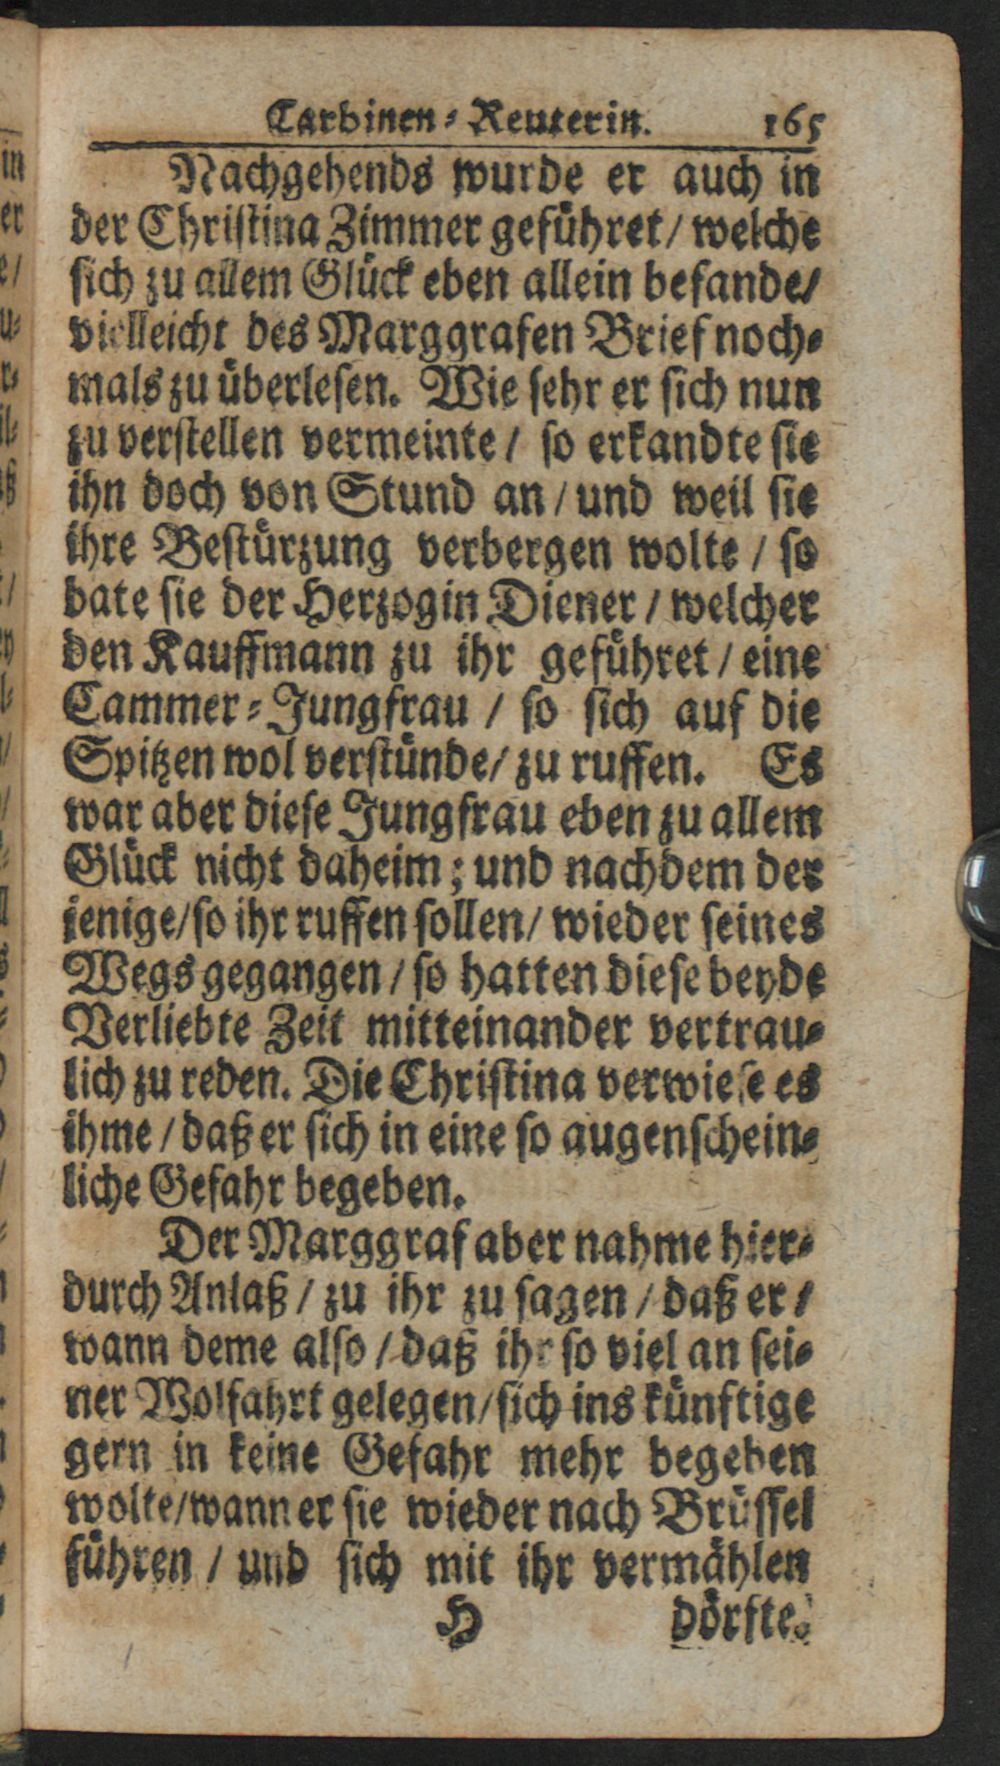 Carbinen-Reuterin. 165
Nachgehends wurde er auch in
der Christina Zimmer geführet / welche
sich zu allem Glück eben allein befande /
vielleicht des Marggrafen Brief noch-
mals zu überlesen. Wie sehr er sich nun
zu verstellen vermeinte / so erkandte sie
ihn doch von Stund an / und weil sie
ihre Bestürzung verbergen wolte / so
bate sie der Herzogin Diener / welcher
den Kauffmann zu ihr geführet / eine
Cammer-Jungfrau / so sich auf die
Spitzen wol verstünde / zu ruffen. Es
war aber diese Jungfrau eben zu allem
Glück nicht daheim; und nachdem der
jenige / so ihr ruffen sollen / wieder seines
Wegs gegangen / so hatten diese beyde
Verliebte Zeit mitteinander vertrau-
lich zu reden. Die Christina verwiese es
ihme / daß er sich in eine so augenschein-
liche Gefahr begeben.
Der Marggraf aber nahme hier-
durch Anlaß / zu ihr zu sagen / daß er /
wann deme also / daß ihr so viel an sei-
ner Wolfahrt gelegen / sich ins künftige
gern in keine Gefahr mehr begeben
wolte / wann er sie wieder nach Brüssel
führen / und sich mit ihr vermählen
H dörfte.